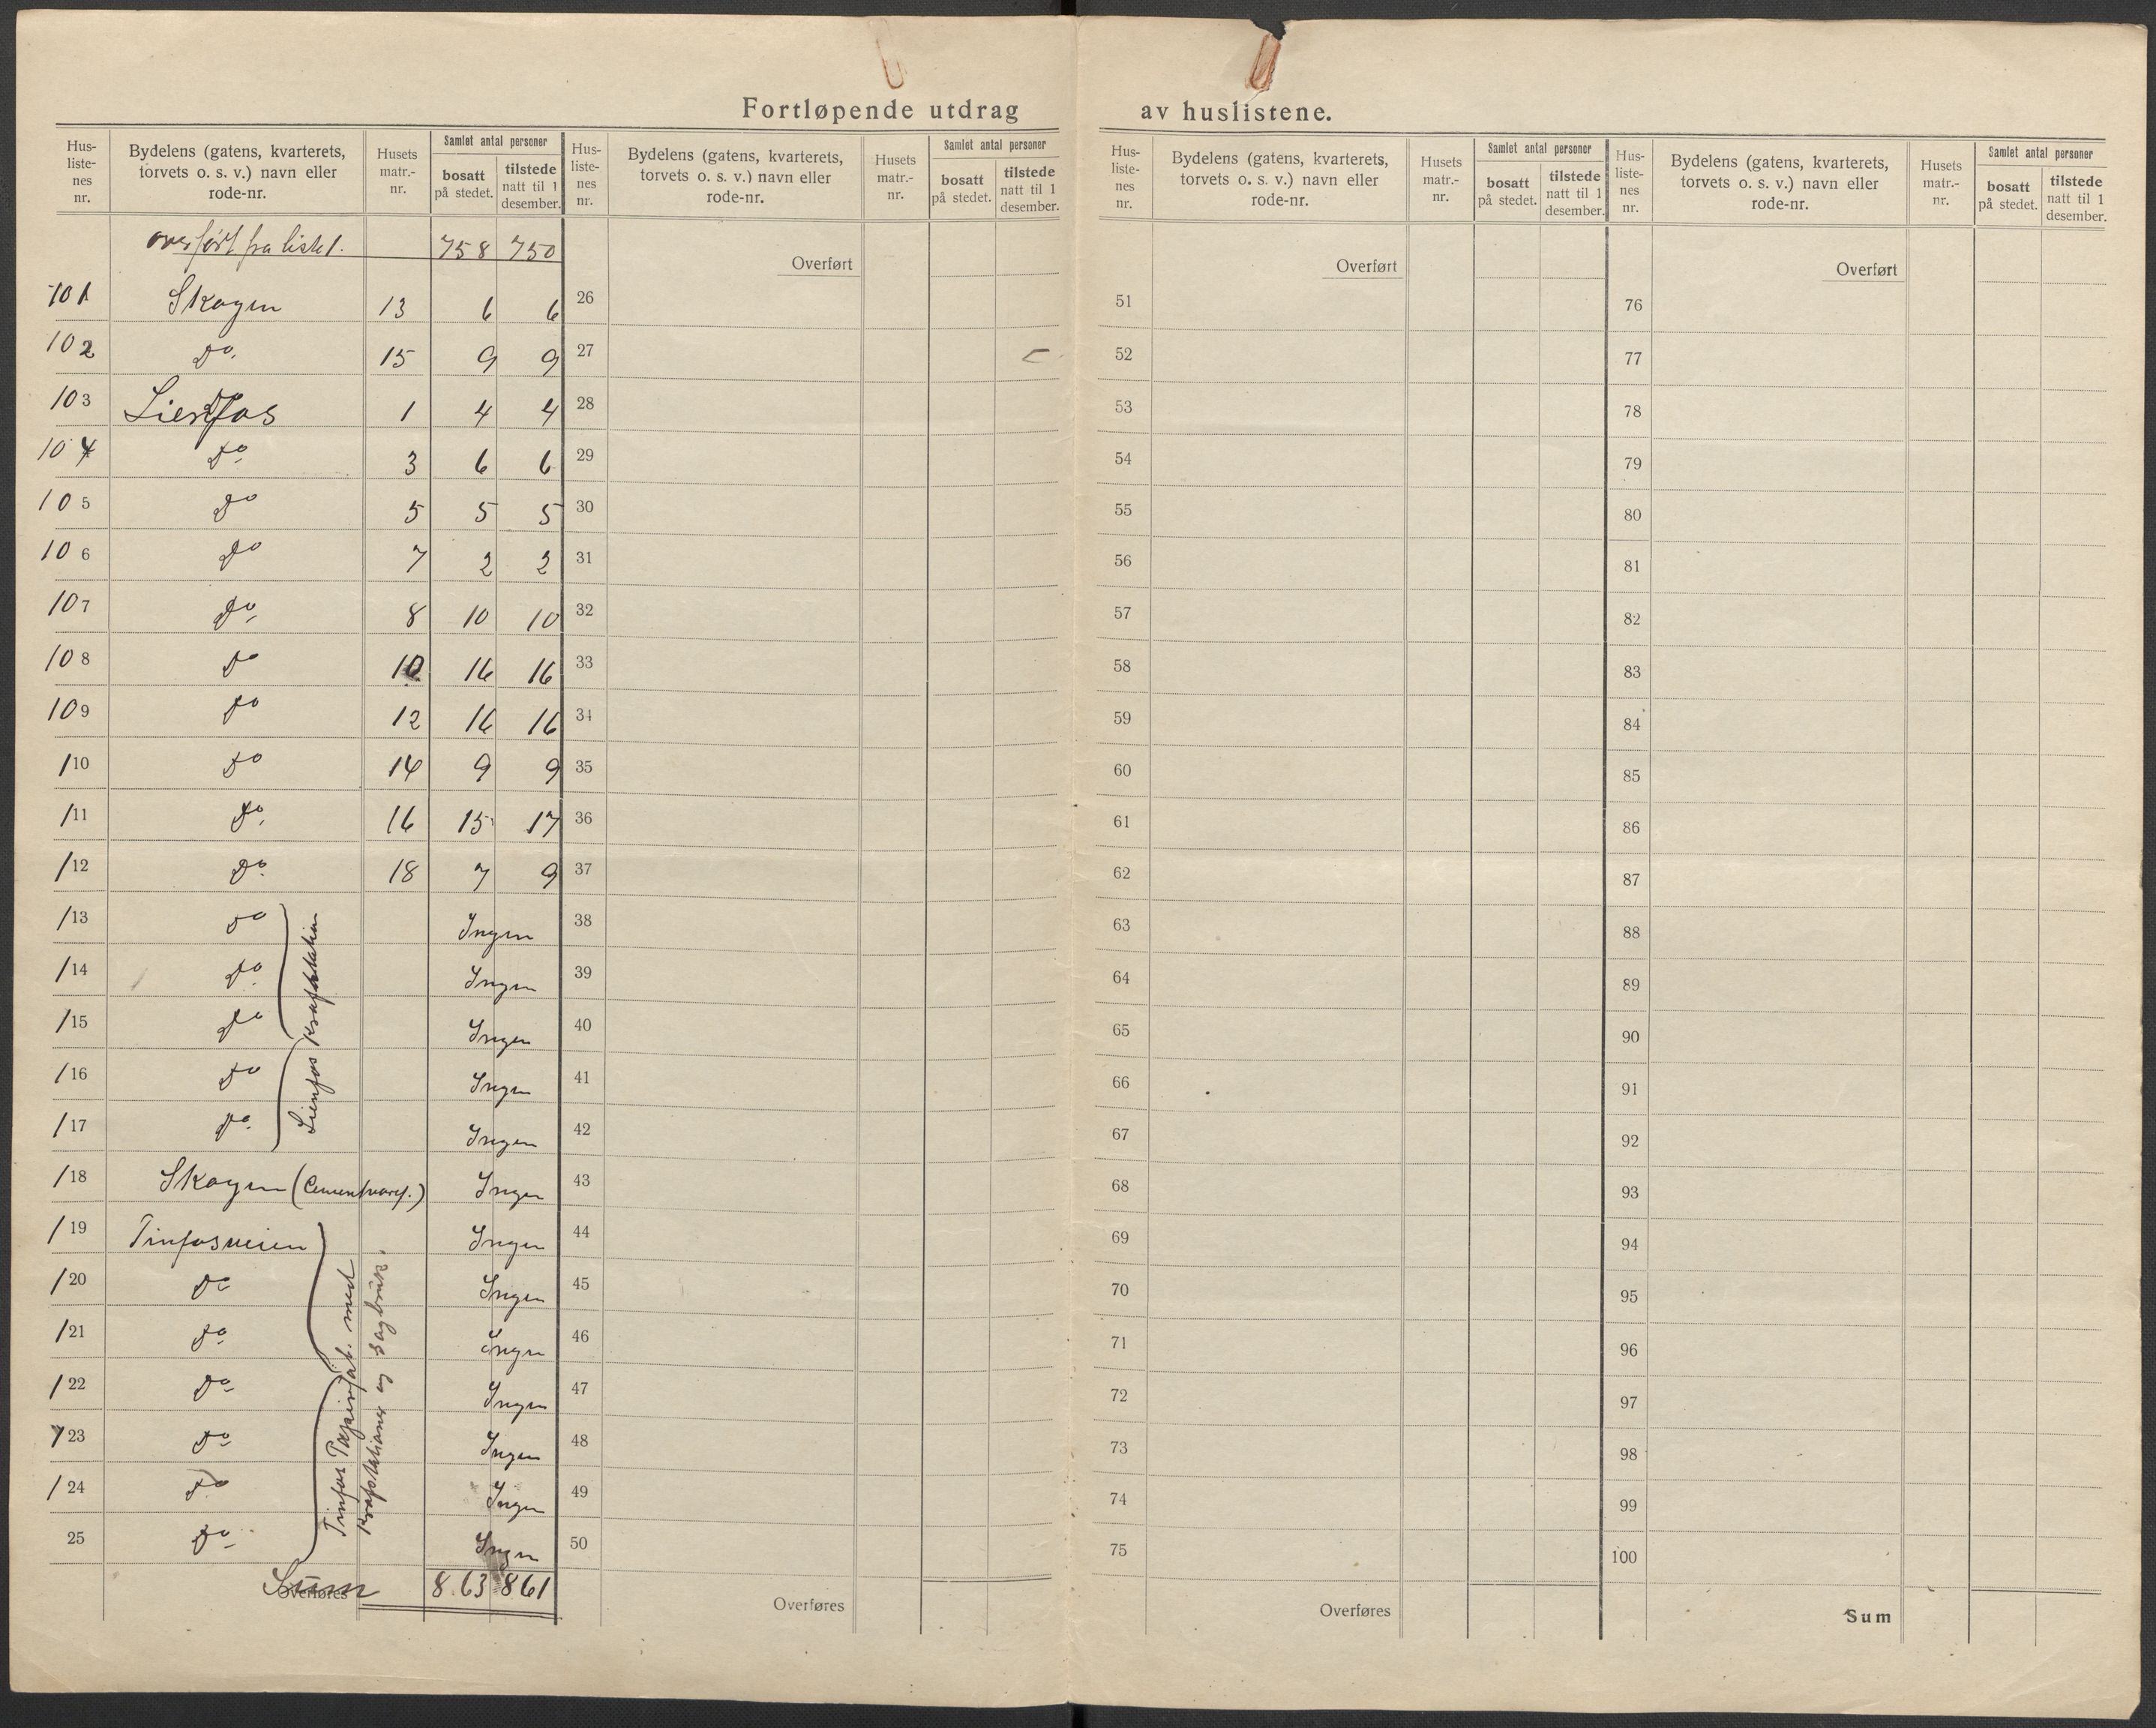 Fortløpende utdrag av huslistene.
Hus-liste-nes nr. | Bydelens (gatens, kvarterets, torvets o. s. v.) navn eller rode-nr. | Husets matr.-nr. | Samlet antal personer | bosatt på stedet. | tilstede natt til 1 desember.
Hus-liste-nes nr. | Bydelens (gatens, kvarterets, torvets o. s. v.) navn eller rode-nr. | Husets matr.-nr. | Samlet antal personer | bosatt på stedet. | tilstede natt til 1 desember.
Hus-liste-nes nr. | Bydelens (gatens, kvarterets, torvets o. s. v.) navn eller rode-nr. | Husets matr.-nr. | Samlet antal personer | bosatt på stedet. | tilstede natt til 1 desember.
Hus-liste-nes nr. | Bydelens (gatens, kvarterets, torvets o. s. v.) navn eller rode-nr. | Husets matr.-nr. | Samlet antal personer | bosatt på stedet. | tilstede natt til 1 desember.
overført fra liste 1. 758 750
101 Skogen 13 6 6
102 Do. 15 9 9
103 Lienfos 1 4 4
104 Do. 3 6 6
105 Do 5 5 5
106 Do 7 2 2
107 Do. 8 10 10
108 Do 10 16 16
109 Do 12 16 16
110 Do 14 9 9
111 Do. 16 15 17
112 Do. 18 7 9
113 Do Ingen
114 Do. Ingen
115 Do Ingen
116 Do Ingen
117 Do. Ingen
Lienfos Kraftstation
118 Skogen (Cementvaref.) Ingen
119 Tinfosveien Ingen
120 Do Ingen
121 Do. Ingen
122 Do. Ingen
123 Do. Ingen
124 Do Ingen
25 Do. Ingen
Tinfos Papirfab. med
Kraftstationer og Sagbruk.
Overføres
Sum 863 861
Overført
26
27
28
29
30
31
32
33
34
35
36
37
38
39
40
41
42
43
44
45
46
47
48
49
50
Overføres
Overført
51
52
53
54
55
56
57
58
59
60
61
62
63
64
65
66
67
68
69
70
71
72
73
74
75
Overføres
Overført
76
77
78
79
80
81
82
83
84
85
86
87
88
89
90
91
92
93
94
95
96
97
98
99
100
Sum